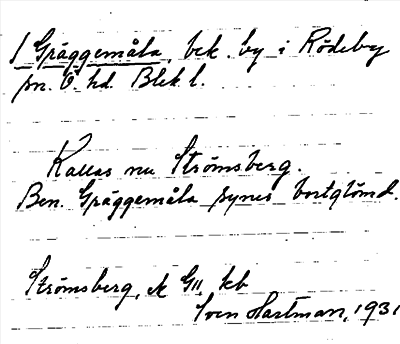 1 Gräggemåla, bek. by i Rödeby
sn. Ö. hd. Blek. l.
Kallas nu Strömsberg.
Ben. Gräggemåla synes bortglömd.
Strömsberg, kb
Sven Hartman, 1931